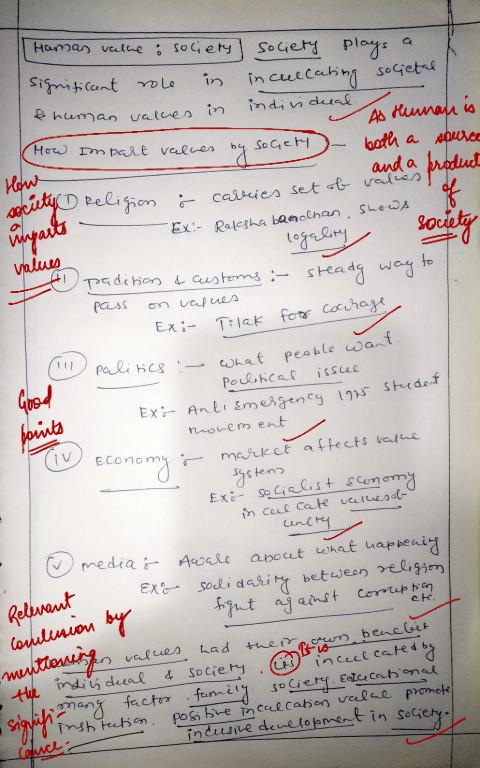 Human value : society society plays a
significant role in inculcating societal
& human values in individual.
How Impart values by society —
As Human is
both a source
and a product
of
society
How
society
imparts
values
(I) Religion :- carries set of values
Ex:- Rakshabandhan. shows
logality
ii) Tradition & customs :- steady way to
pass on values
Ex:- Tilak for courage
(iii) Palitics :— what people want.
political issue
Ex:- Anti emergency 1975 student
movement
Good
points
(iv) Economy :- market affects value
system
Ex:- socialist economy
inculcate values of
unity
(v) media :- Aware about what happening
Ex:- solidarity between religion
fight against corruption
etc.
Relevant
conclusion by
mentioning
the
signifi-
cance.
Human values had their own benefit
individual & society. its It is inculcated by
many factor. family society. Educational
institution. positive inculcation value promote
inclusive development in society.